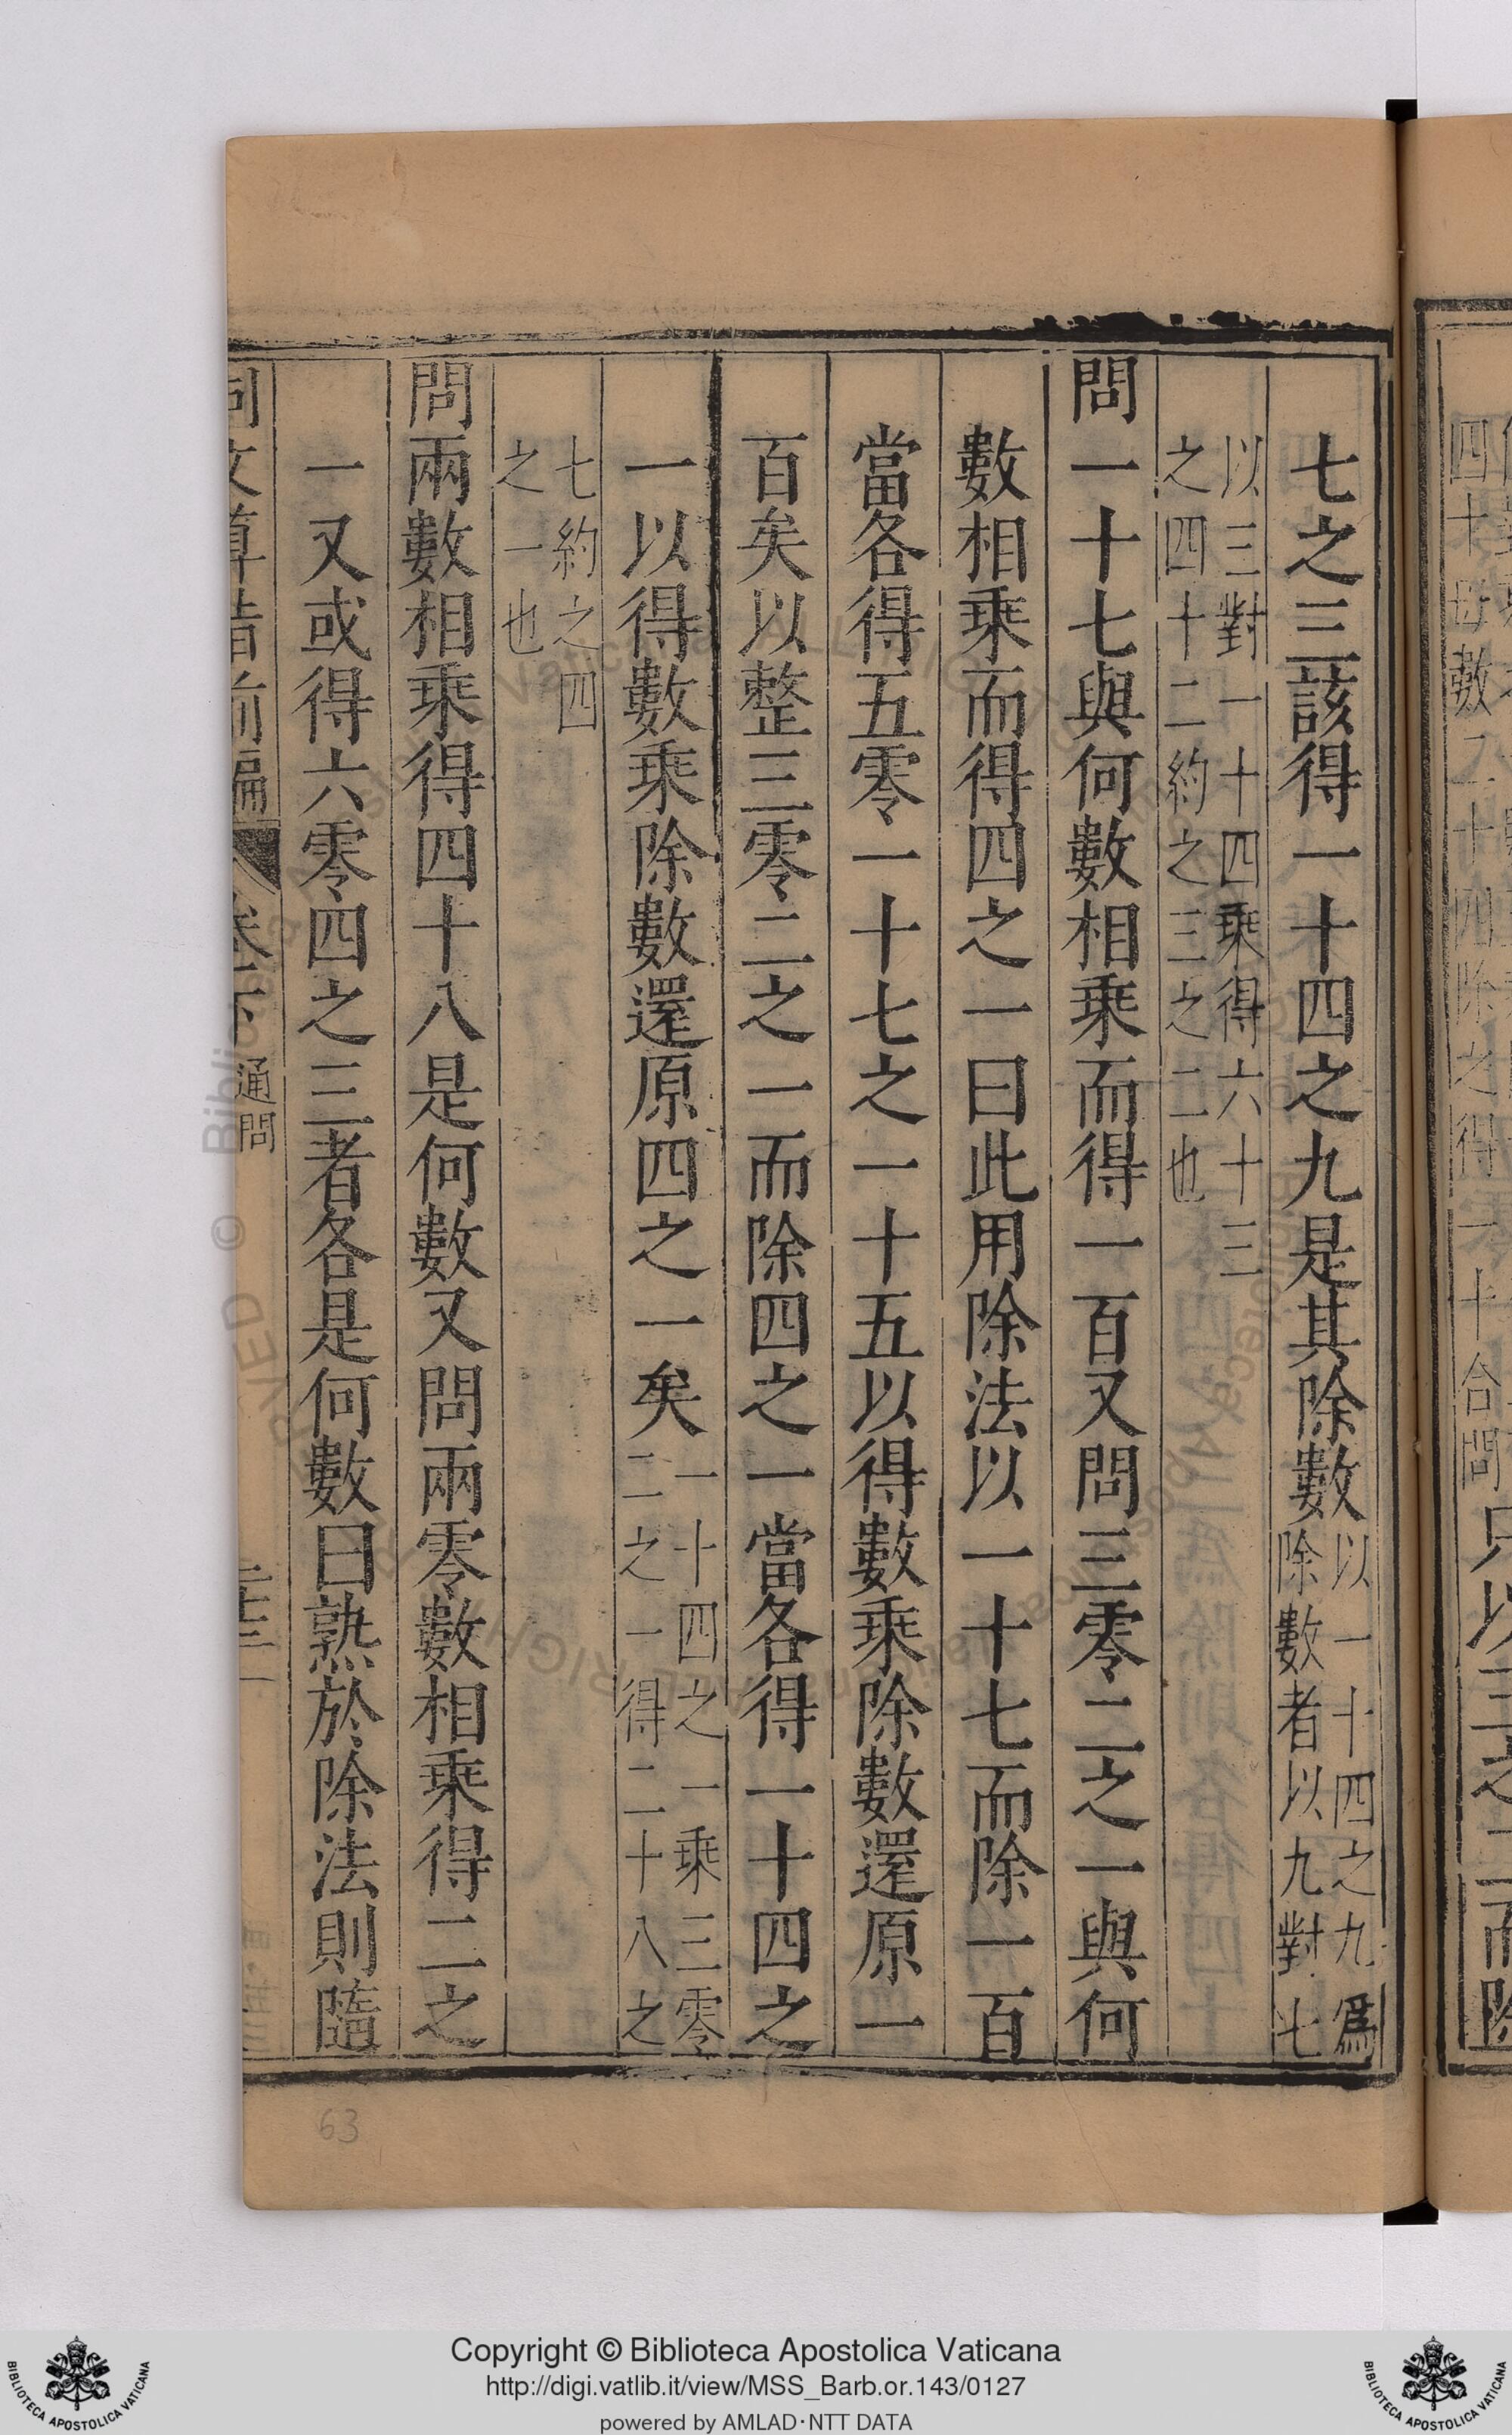 七之三該得一十四之九是其除數以一十四之九爲除數者以九對七
以三對一十四乘得六十三之四十二約之三之二也
問一十七與何數相乘而得一百又問三零二之一與何
數相乘而得四之一曰此用除法以一十七而除一百
當各得五零一十七之一十五以得數乘除數還原一
百矣以整三零二之一而除四之一當各得一十四之
一以得數乘除數還原四之一矣一十四之一乘三零二之一得二十八之
七約之四之一也
問兩數相乘得四十八是何數又問兩零數相乘得二之
一又或得六零四之三者各是何數曰熟於除法則隨
同文算指前編 卷下 通問
63
Copyright © Biblioteca Apostolica Vaticana
http://digi.vatlib.it/view/MSS_Barb.or.143/0127
powered by AMLAD·NTT DATA
BIBLIOTECA APOSTOLICA VATICANA
BIBLIOTECA APOSTOLICA VATICANA